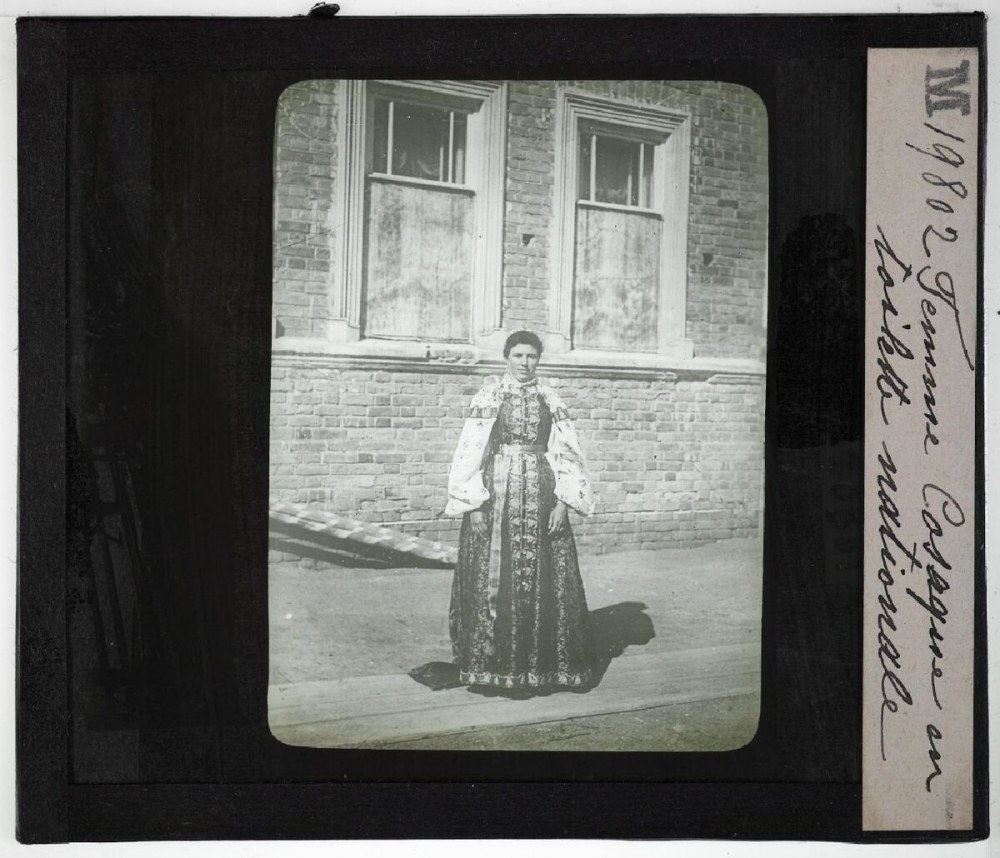 M 19802 Femme Cosaque en
toilette nationale